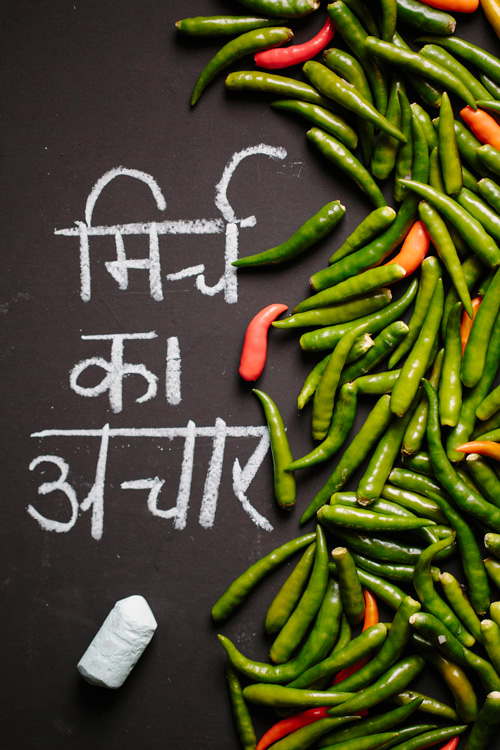 मिर्च
का
अचार